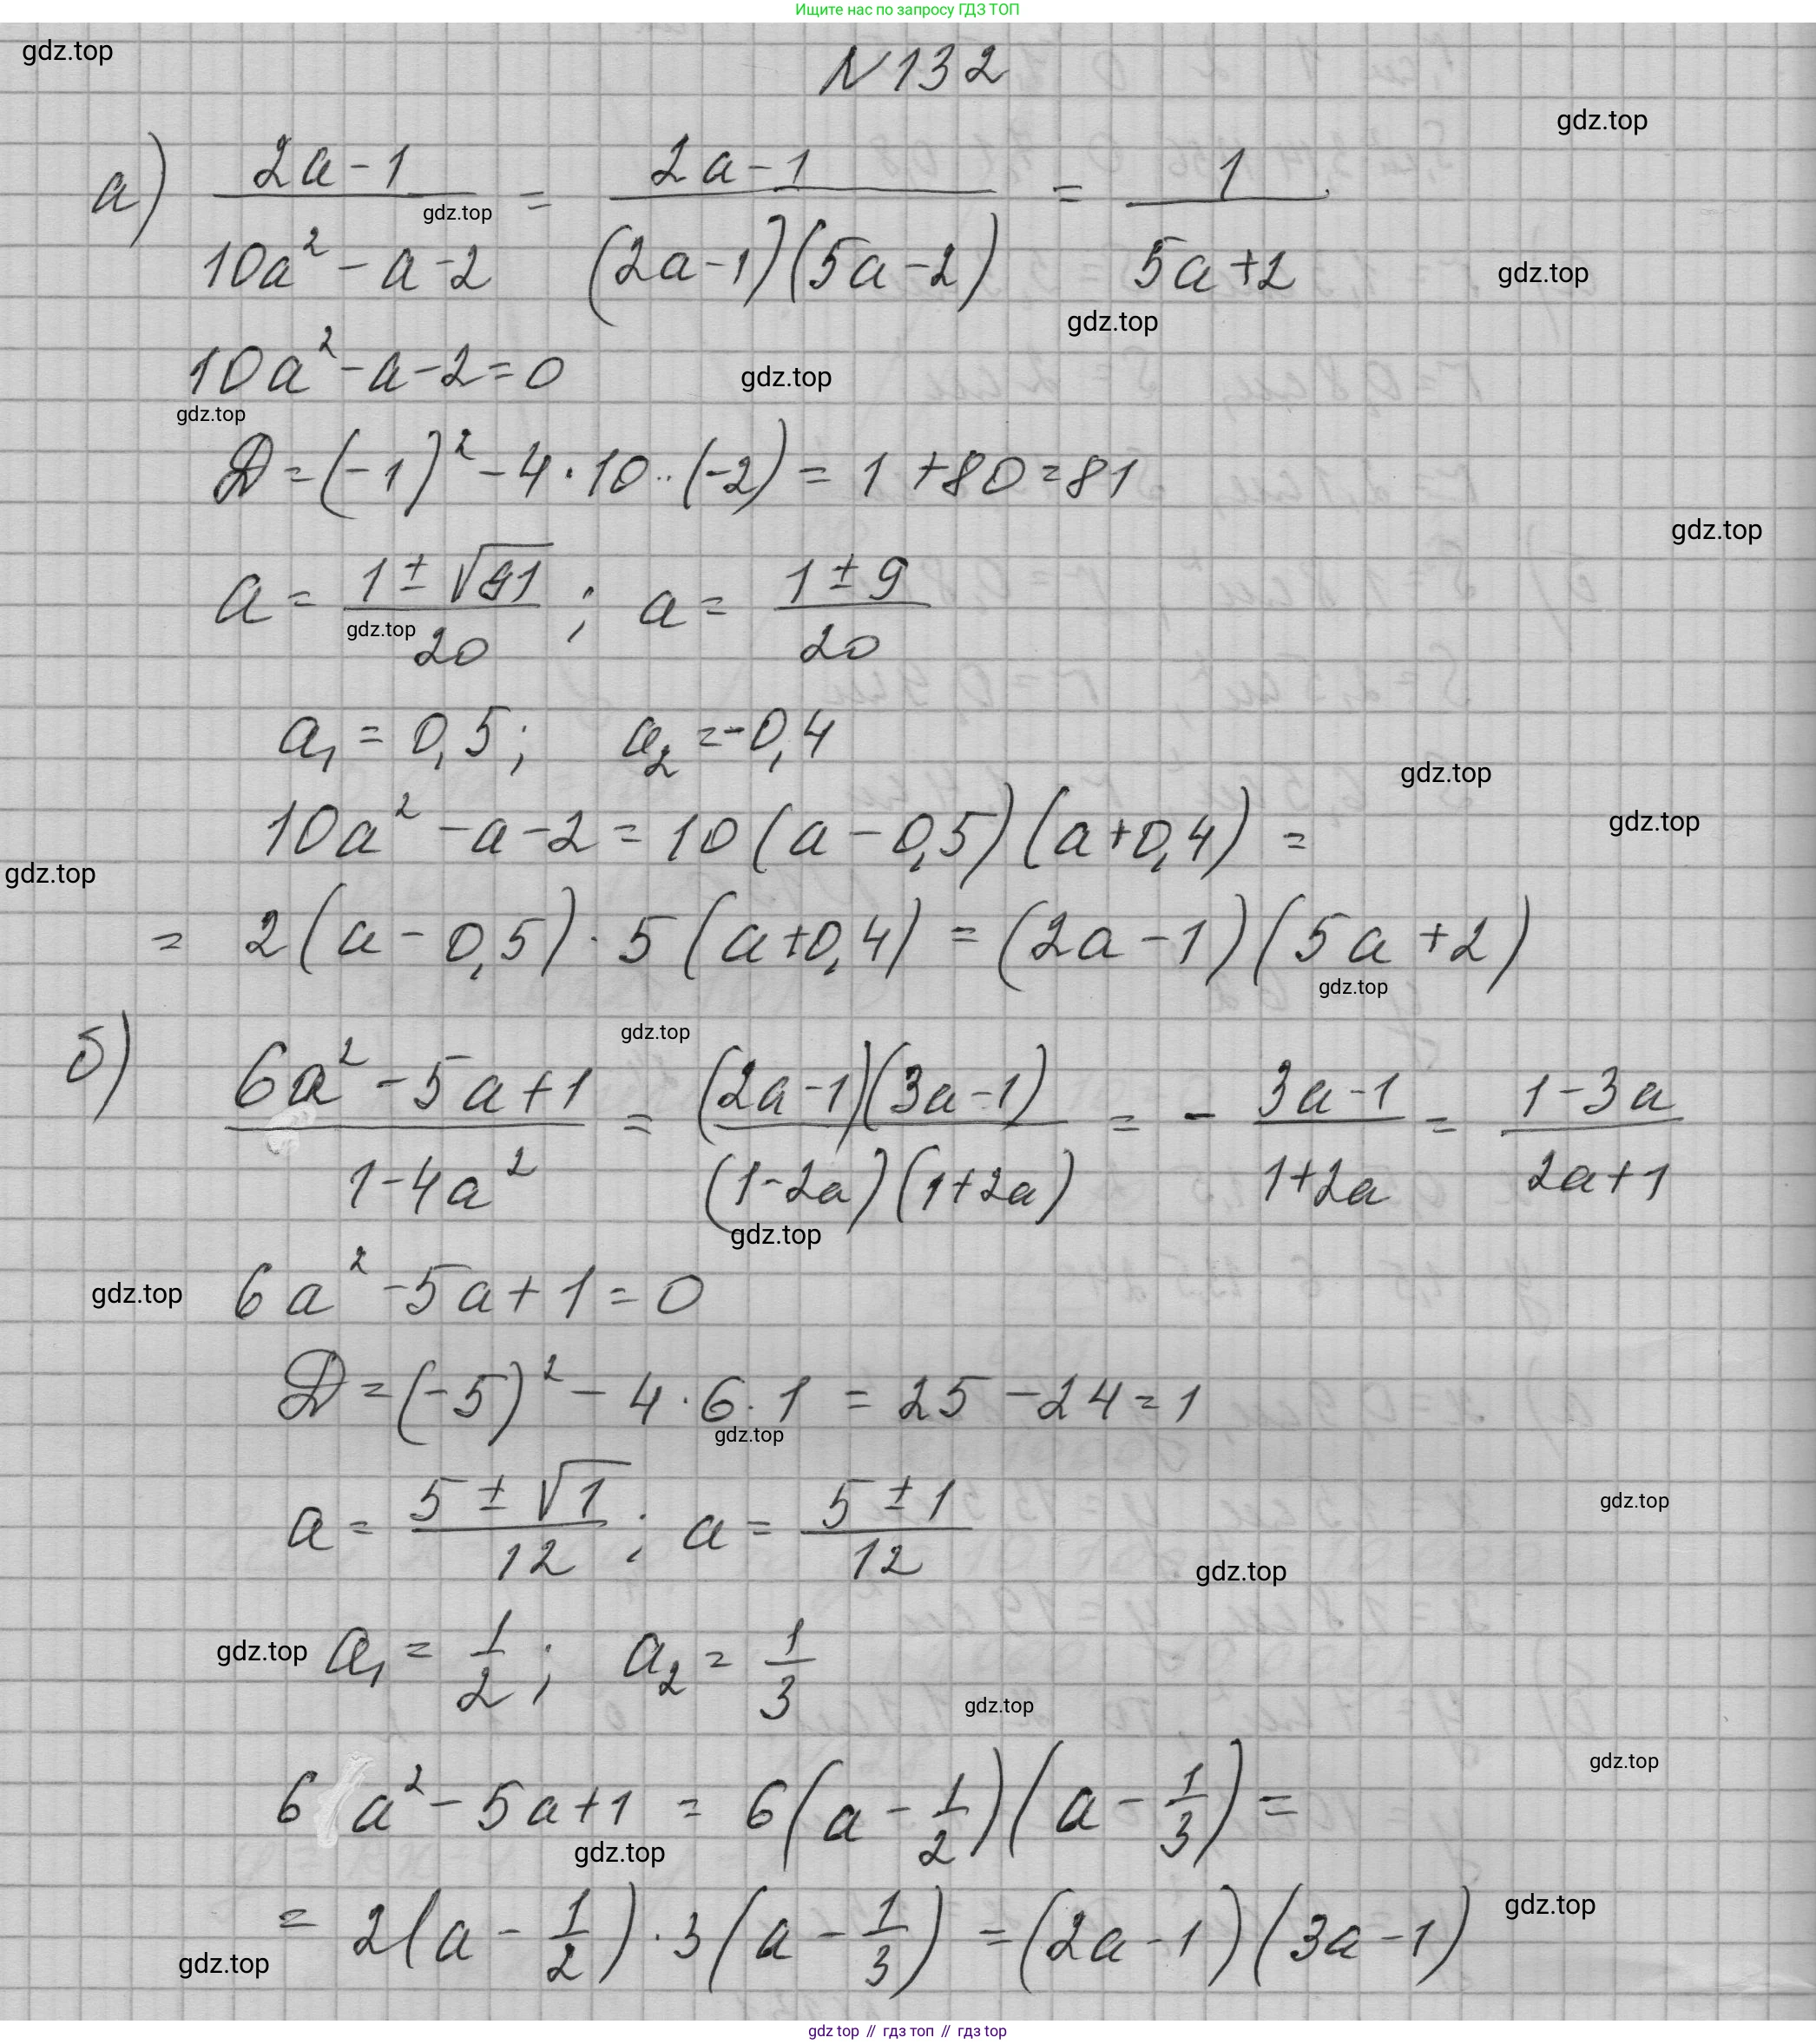 Ищите нас по запросу ГДЗ ТОП
gdz.top
N 132
gdz.top
а) (2a-1)/(10a² - a - 2) = (2a-1)/((2a-1)(5a-2)) = 1/(5a+2)
gdz.top
gdz.top
gdz.top
10a² - a - 2 = 0
gdz.top
gdz.top
D = (-1)² - 4 · 10 ·· (-2) = 1 + 80 = 81
gdz.top
a = (1 ± √81)/20 ; a = (1 ± 9)/20
gdz.top
a₁ = 0,5; a₂ = -0,4
gdz.top
10a² - a - 2 = 10(a - 0,5)(a + 0,4) =
gdz.top
gdz.top
= 2(a - 0,5) · 5(a + 0,4) = (2a - 1)(5a + 2)
gdz.top
gdz.top
б) (6a² - 5a + 1)/(1 - 4a²) = ((2a-1)(3a-1))/((1-2a)(1+2a)) = - (3a-1)/(1+2a) = (1-3a)/(2a+1)
gdz.top
gdz.top
6a² - 5a + 1 = 0
D = (-5)² - 4 · 6 · 1 = 25 - 24 = 1
gdz.top
a = (5 ± √1)/12 ; a = (5 ± 1)/12
gdz.top
gdz.top
gdz.top
a₁ = 1/2 ; a₂ = 1/3
gdz.top
gdz.top
6 a² - 5a + 1 = 6(a - 1/2)(a - 1/3) =
gdz.top
= 2(a - 1/2) · 3(a - 1/3) = (2a - 1)(3a - 1)
gdz.top
gdz.top
gdz top // гдз топ // гдз top